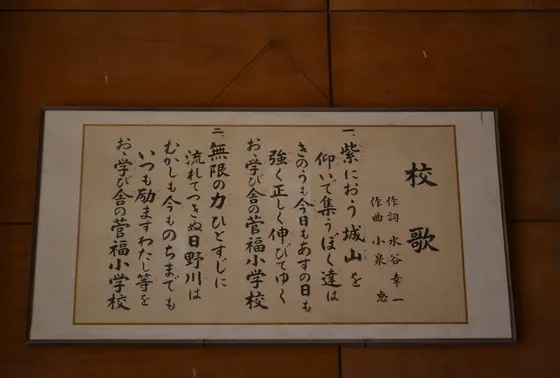 校歌
作詞 水谷幸一
作曲 小泉 恵
一、紫におう城山を
仰いで集うぼく達は
きのうも今日もあすの日も
強く正しく伸びてゆく
お、学び舎の菅福小学校
二、無限の力ひとすじに
流れてつきぬ日野川は
むかしも今ものちまでも
いつも励ますわたし等を
お、学び舎の菅福小学校